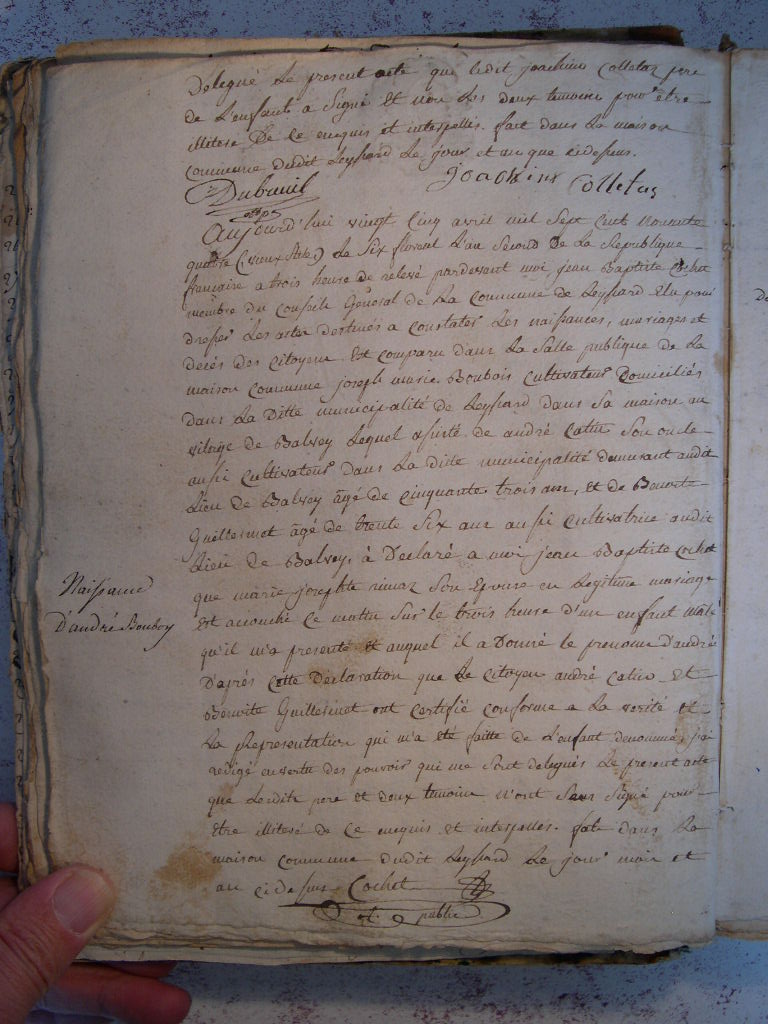 Delegué le present acte que ledit joachim Colletaz pere
de L'enfant a Signé et non les deux temoins pour etre
illiteré De ce enequis et interpellés. fait dans La maison
commune dudit Leyssard Le jour et an que cidessus.
Dubreuil joachim Colletas
Aujourd'hui vingt Cinq avril mil Sept Cent Nonante
quatre (vieux stile) Le Six floreal L'an Second De La Republique
francaise a trois heure de relevé pardevant moi jean Baptiste Cochet
membre du Conseile General de La Commune de Leyssard Elu pour
dresser Les actes destinés a Constater Les naissances, mariages et
decés des Citoyens Est comparu dans La Salle publique de La
maison Commune joseph marie Boubois Cultivateur Domiciliés
dans La Ditte municipalité de Leyssard dans Sa maison au
vilage de Balvey Lequel assisté de andré Catin Son oncle
aussi Cultivateur dans La dite municipalité demeurant audit
Lieu de Balvey âgé de Cinquante trois ans, et de Benoite
Guillerinot âgé de trente Six ans aussi Cultivatrice audit
Lieu de Balvey, à Declaré a moi jean Baptiste Cochet
que marie josephte Son Epouse en Legitime mariage
Est accouché Ce matin Sur le trois heure d'un enfant male
qu'il m'a presenté et auquel il a Donné le prenom d'andré
D'après Cette Declaration que Le Citoyen andré Catin et
Benoite Guillerinet ont Certifié conforme a La verité et
La Representation qui m'a été faitte de L'enfant denommé, j'ai
redigé en vertu des pouvoir qui me Sont delegués Le present acte
que Ledite pere et deux temoins n'ont Signé pour
Etre illiteré de Ce enequis et interpellés. fait dans La
maison Commune dudit Leyssard Le jour mois et
an cidessus Cochet
of. public
Naissance
D'andré Bouboy